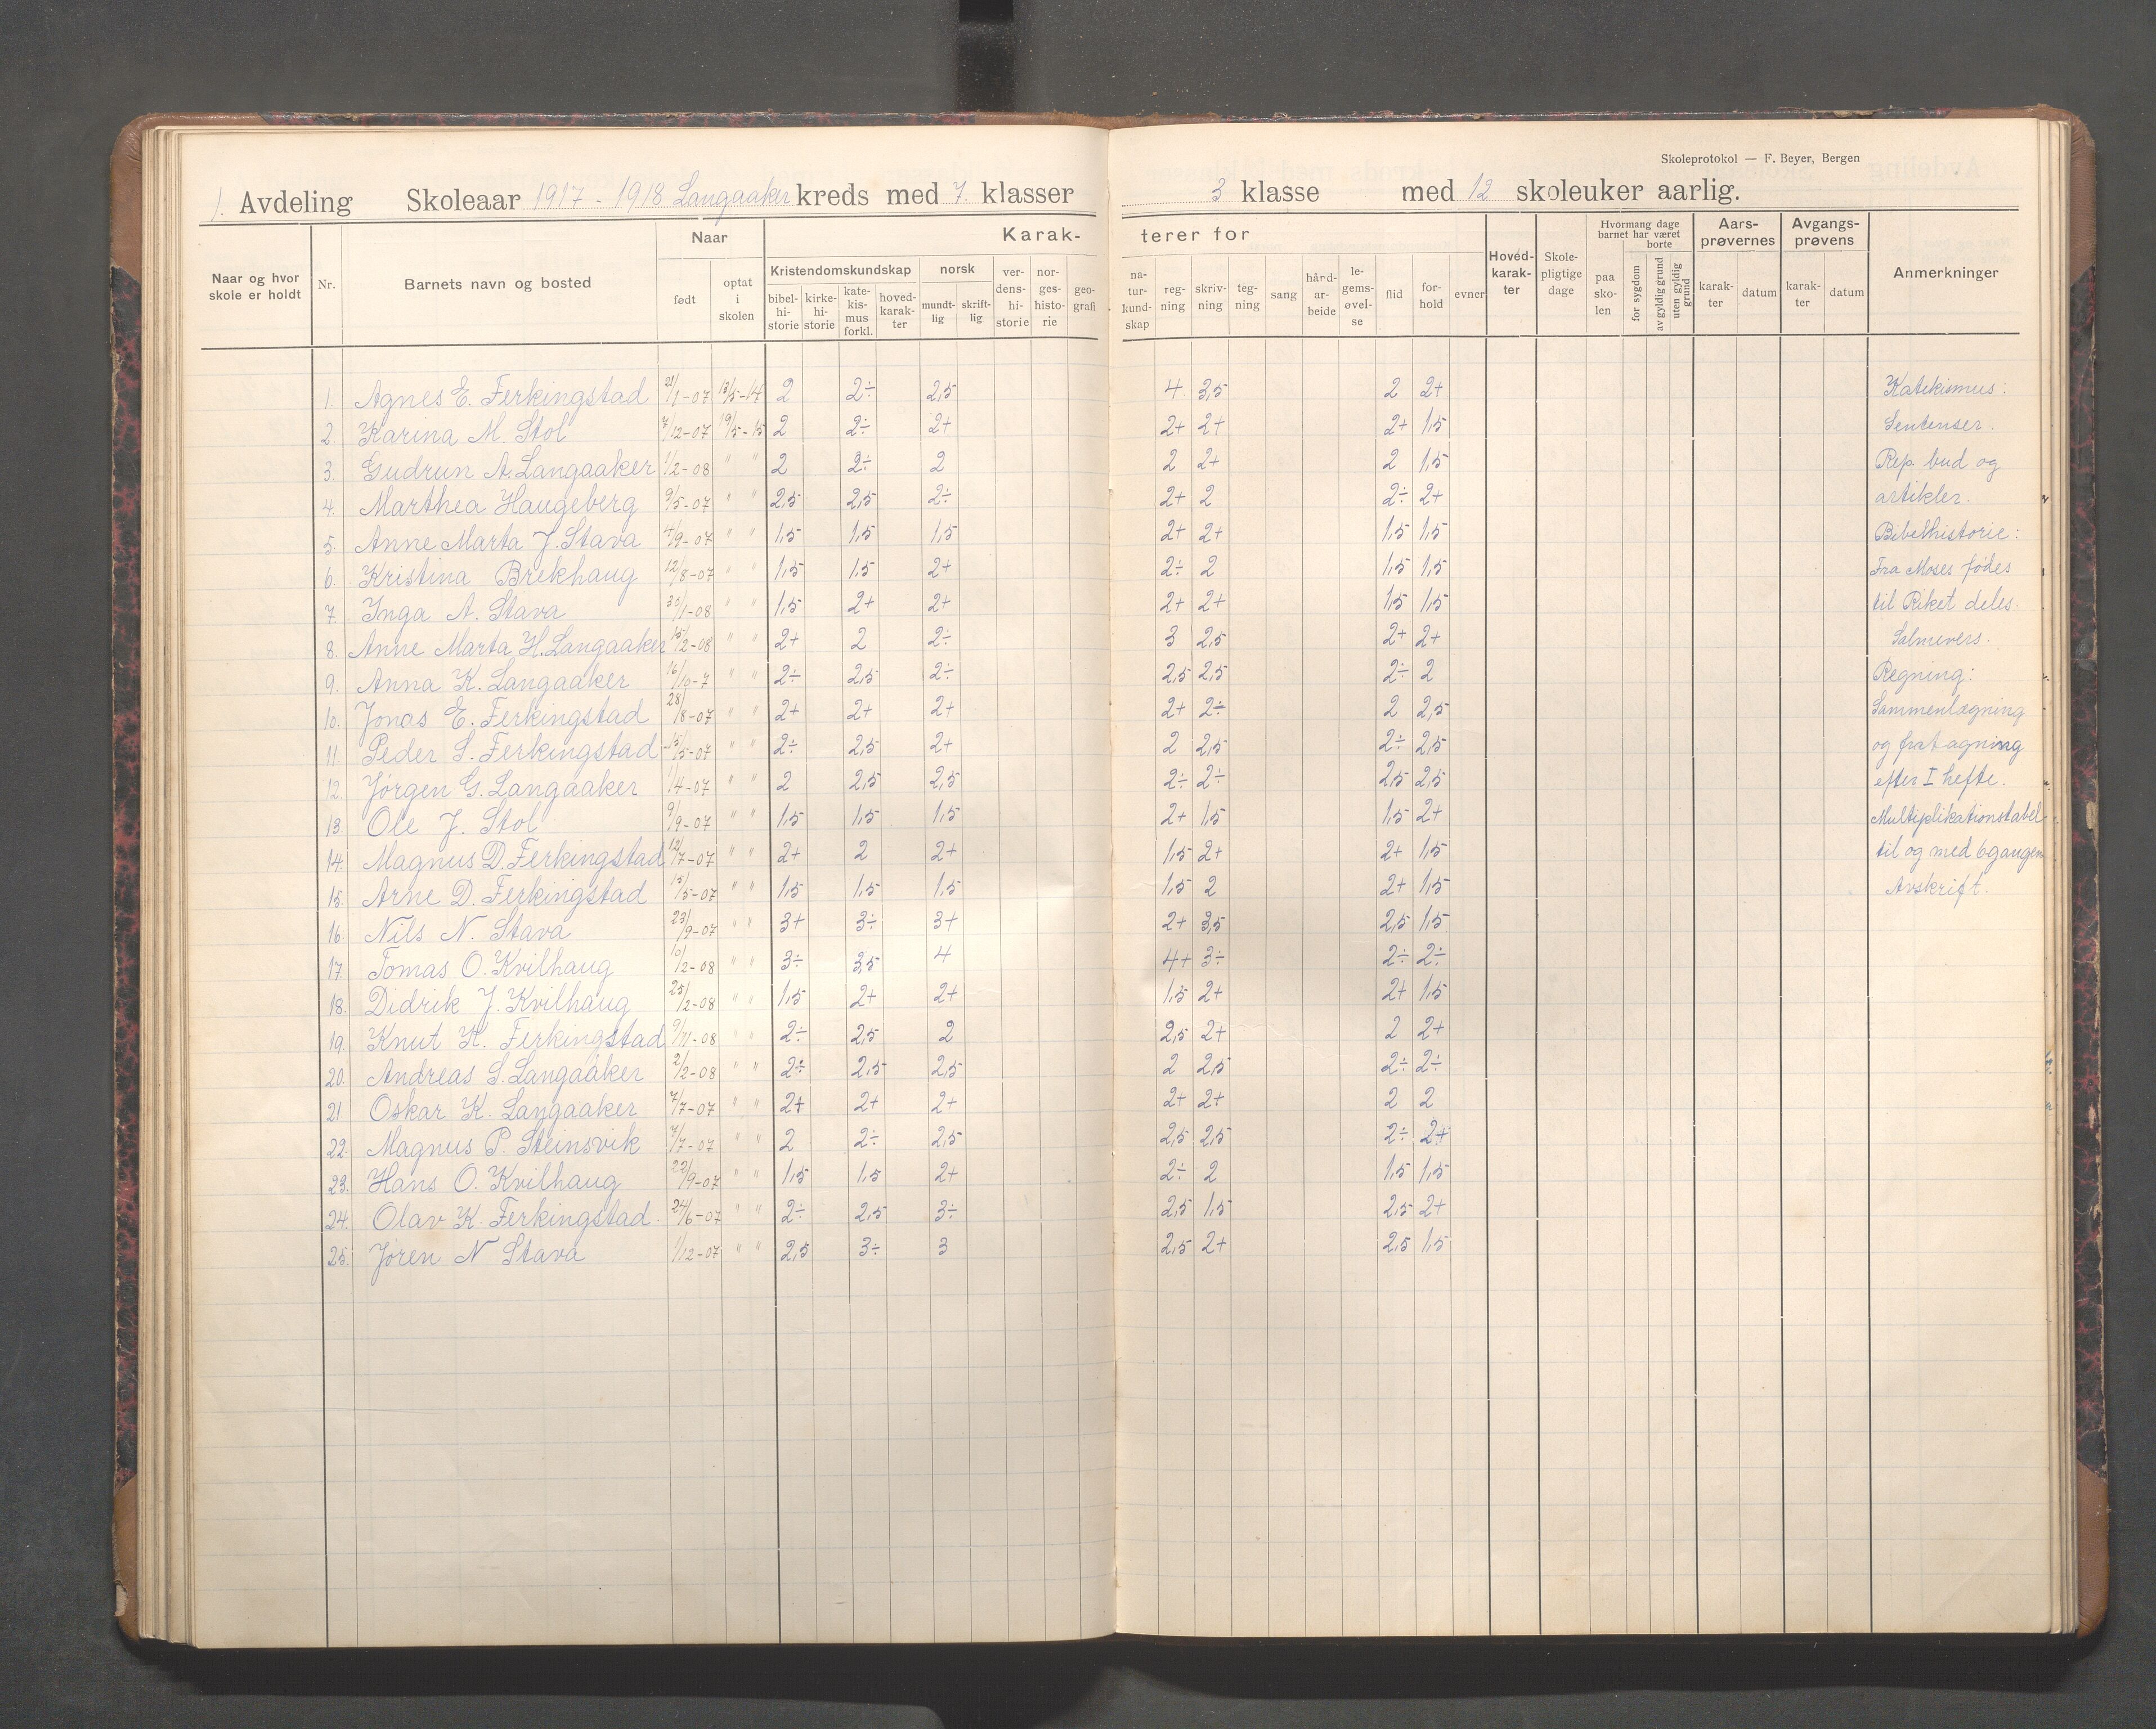 Skoleprotokol — F. Beyer, Bergen
1. Avdeling Skoleaar 1917 - 1918 Langaaker kreds med 7. klasser 3 klasse med 12 skoleuker aarlig.
Naar og hvor skole er holdt | Nr. | Barnets navn og bosted | Naar født | optat i skolen | Karakterer for | Kristendomskundskap: bibelhistorie | kirkehistorie | katekismus forkl. | hovedkarakter | norsk: mundtlig | skriftlig | verdenshistorie | norgeshistorie | geografi | naturkundskap | regning | skrivning | tegning | sang | hårdarbeide | legemsøvelse | flid | forhold | evner | Hovedkarakter | Skolepligtige dage | Hvormang dage barnet har været paa skolen | borte for sygdom | av gyldig grund | uten gyldig grund | Aarsprøvernes karakter | datum | Avgangsprøvens karakter | datum | Anmerkninger
1. Agnes E. Ferkingstad 21/1-07 13/5-14 2 2÷ 2,5 4 3,5 2 2+ Katekismus:
2. Karina M. Stol 7/12-07 19/5-15 2 2÷ 2+ 2+ 2+ 2+ 1,5 Sentenser.
3. Gudrun A. Langaaker 1/2-08 " " 2 2÷ 2 2 2+ 2 1,5 Rep. bud og
4. Marthea Haugeberg 9/5-07 " " 2,5 2,5 2÷ 2+ 2 2÷ 2+ artikler.
5. Anne Marta J. Stava 4/9-07 " " 1,5 1,5 1,5 2+ 2+ 1,5 1,5 Bibelhistorie:
6. Kristina Brekhaug 12/8-07 " " 1,5 1,5 2+ 2÷ 2 1,5 1,5 Fra Moses fødes
7. Inga A. Stava 30/1-08 " " 1,5 2+ 2+ 2+ 2+ 1,5 1,5 til Riket deles.
8. Anne Marta H. Langaaker 15/2-08 " " 2+ 2 2÷ 3 2,5 2+ 2+ Salmevers.
9. Anna K. Langaaker 16/10-7 " " 2÷ 2,5 2÷ 2,5 2,5 2÷ 2 Regning:
10. Jonas E. Ferkingstad 28/8-07 " " 2+ 2+ 2+ 2+ 2÷ 2 2,5 Sammenlægning
11. Peder S. Ferkingstad 15/5-07 " " 2÷ 2,5 2+ 2 2,5 2÷ 2,5 og fratagning
12. Jørgen G. Langaaker 1/4-07 " " 2 2,5 2,5 2÷ 2÷ 2,5 2,5 efter I hefte.
13. Ole J. Stol 9/9-07 " " 1,5 1,5 1,5 2+ 1,5 1,5 2+ Multiplikationstabel
14. Magnus D. Ferkingstad 12/7-07 " " 2+ 2 2+ 1,5 2+ 2+ 1,5 til og med 6gangen
15. Arne D. Ferkingstad 15/5-07 " " 1,5 1,5 1,5 1,5 2 2+ 1,5 Avskrift.
16. Nils N. Stava 23/9-07 " " 3+ 3÷ 3+ 2+ 3,5 2,5 1,5
17. Tomas O. Kvilhaug 10/2-08 " " 3÷ 3,5 4 4+ 3÷ 2÷ 2÷
18. Didrik J. Kvilhaug 25/2-08 " " 1,5 2+ 2+ 1,5 2+ 2+ 1,5
19. Knut K. Ferkingstad 9/11-08 " " 2÷ 2,5 2 2,5 2+ 2 2+
20. Andreas S. Langaaker 2/2-08 " " 2÷ 2,5 2,5 2 2,5 2÷ 2÷
21. Oskar K. Langaaker 7/7-07 " " 2+ 2+ 2+ 2+ 2+ 2 2
22. Magnus P. Steinsvik 7/7-07 " " 2 2÷ 2,5 2,5 2,5 2÷ 2+
23. Hans O. Kvilhaug 22/9-07 " " 1,5 1,5 2+ 2÷ 2 1,5 1,5
24. Olav K. Ferkingstad. 24/6-07 " " 2÷ 2,5 3÷ 2,5 1,5 2,5 2+
25. Jøren N Stava 1/12-07 " " 2,5 3÷ 3 2,5 2+ 2,5 1,5